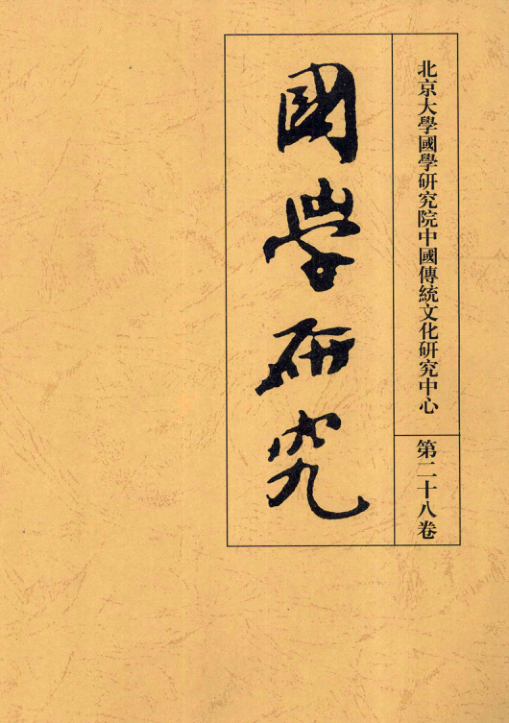 北京大學國學研究院中國傳統文化研究中心
第二十八卷
國學研究